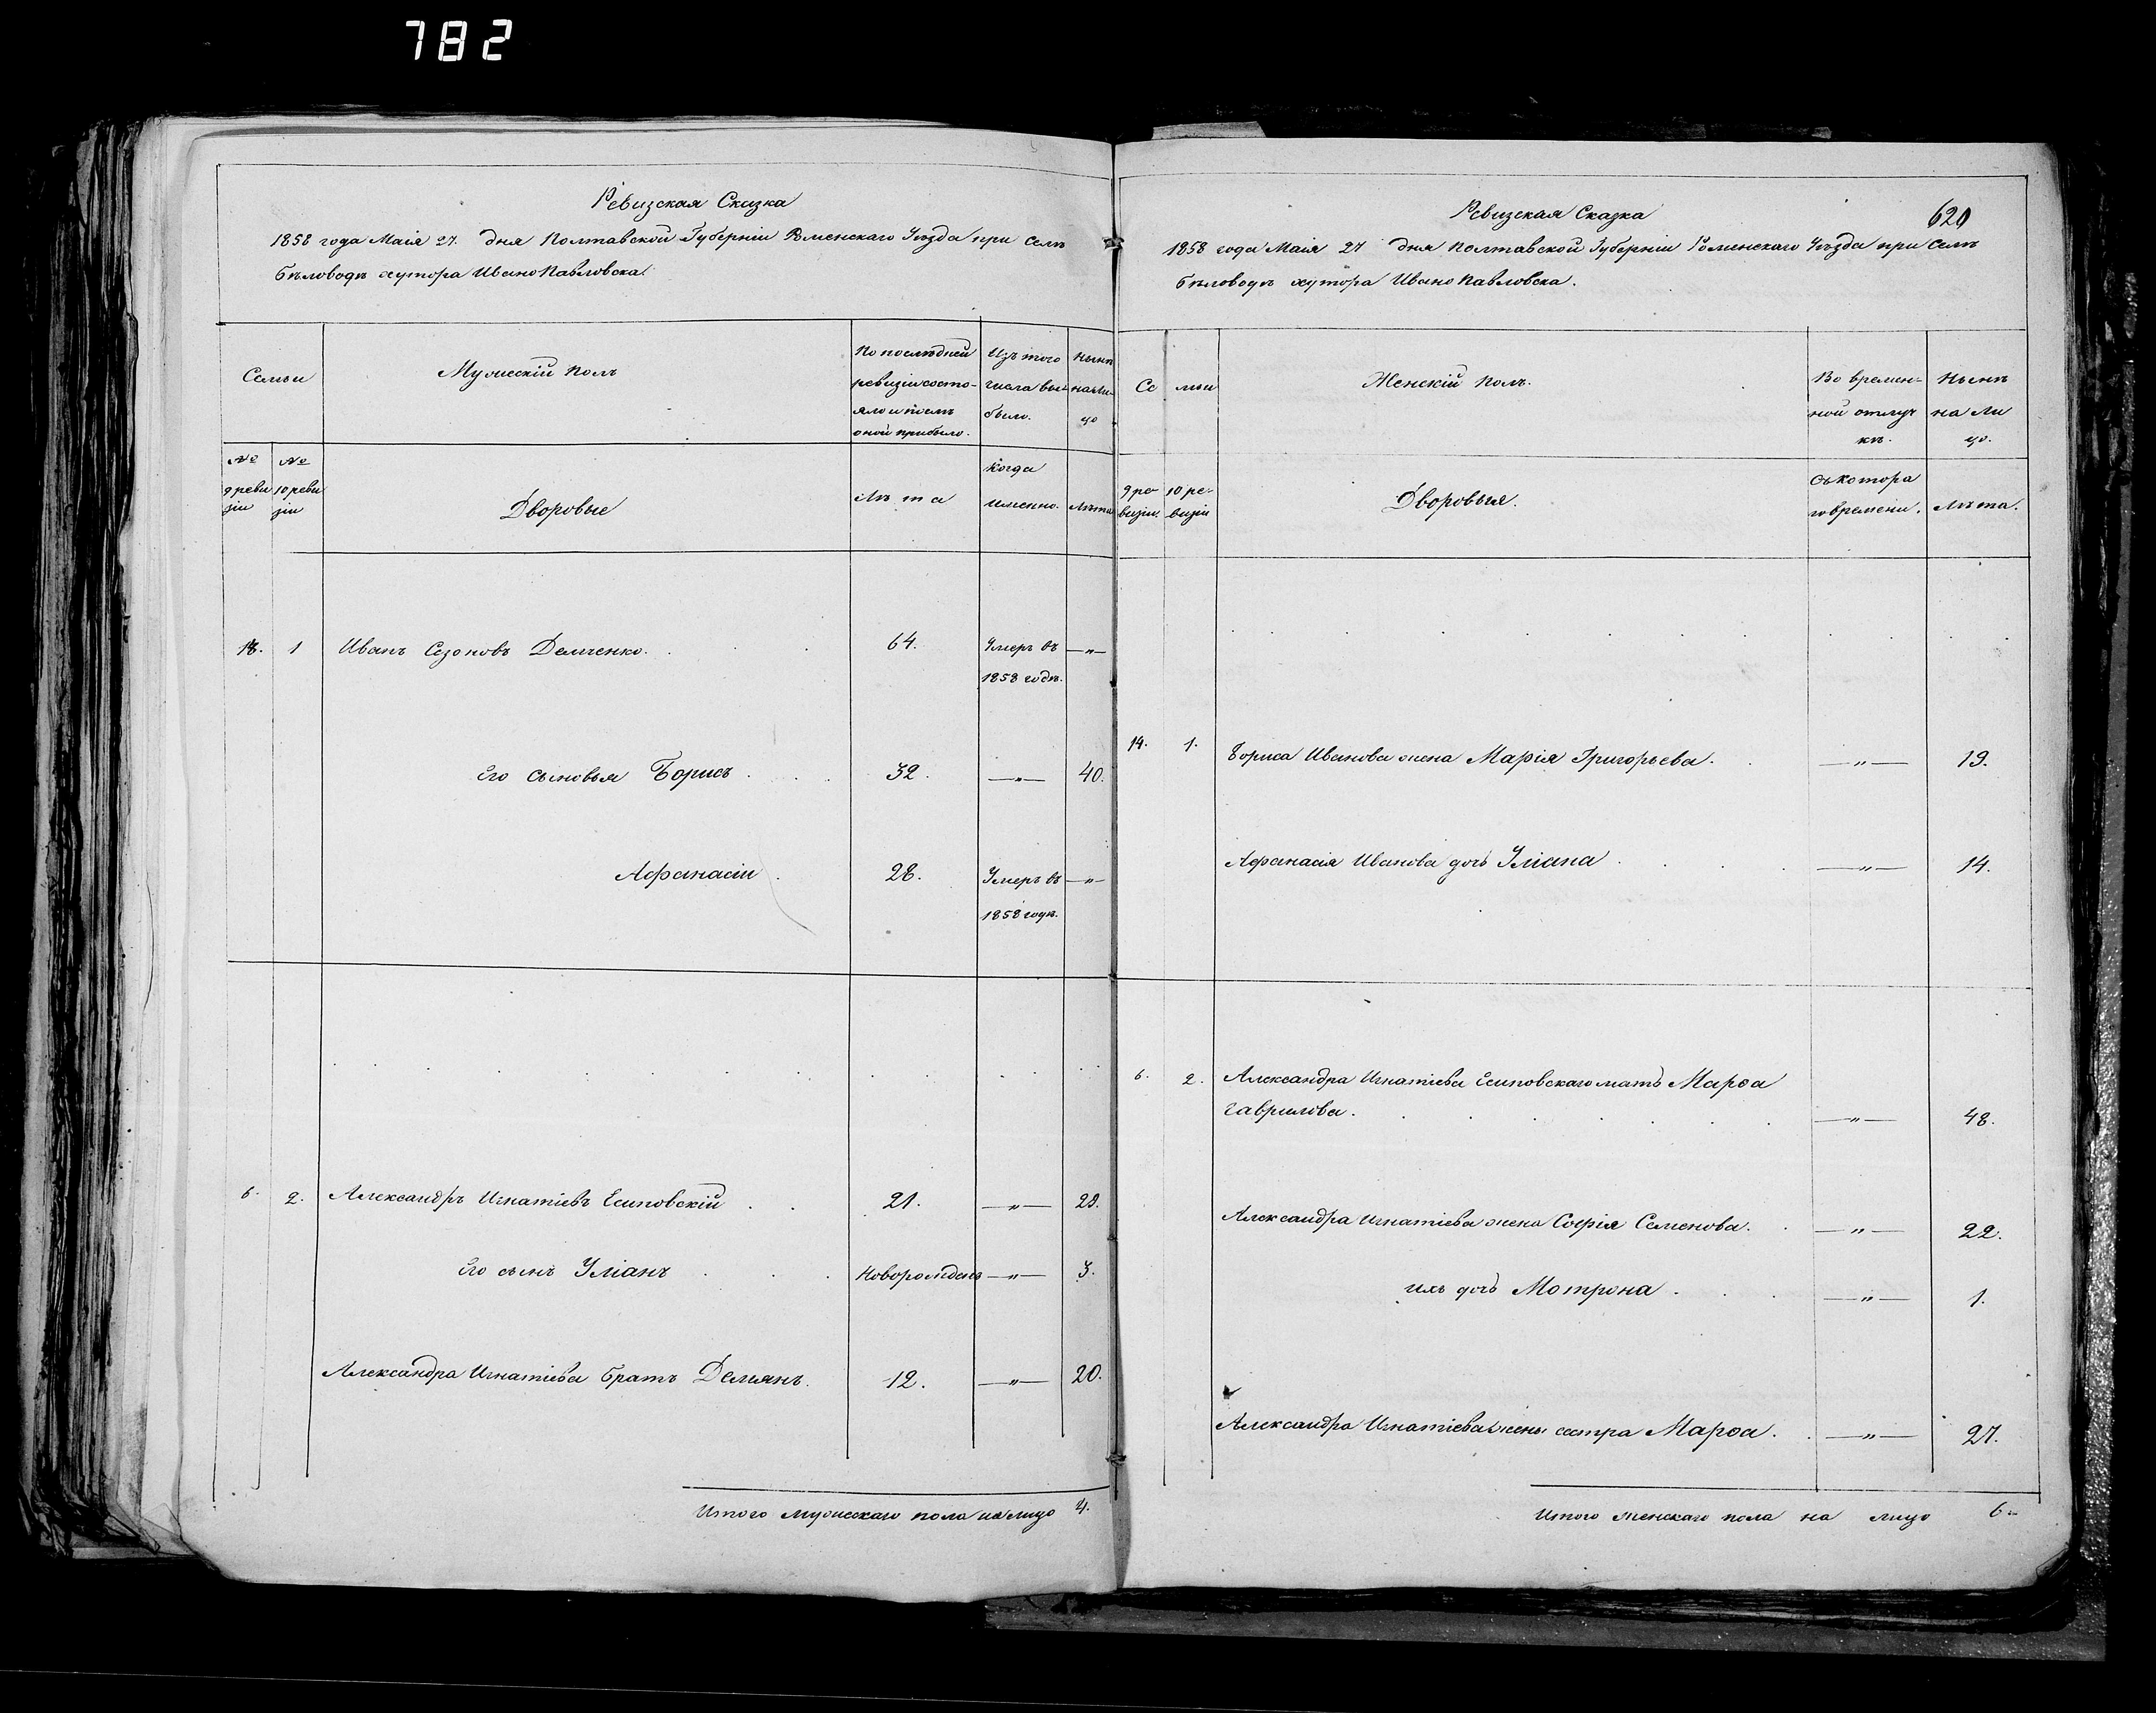 782
Ревизская Сказка
1858 года Маія 27. дня Полтавской Губерніи Роменскаго Уѣзда при Селѣ
Бѣловодѣ хутора Ивано Павловска
Семьи
Мужескій полъ
По послѣдней
ревизіи состо-
яло и послѣ
оной прибыло.
Изъ того
числа вы-
было.
Нынѣ
на ли-
цо
№
9 реви
зіи
№
10 реви
зіи
Дворовые
Лѣта
Когда
именно.
Лѣта
18. 1 Иванъ Созоновъ Демченко. 64. Умеръ въ —"—
1858 годѣ.
Его сыновья Борисъ 32. —"— 40.
Афанасіи 28. Умеръ въ —"—
1858 годѣ.
6. 2. Александръ Игнатіевъ Есиповскій 21. —"— 29.
Его сынъ Уліанъ Новорожденъ —"— 3.
Александра Игнатіева братъ Демянъ. 12. —"— 20.
Итого мужескаго пола на лицо 4.
620
Ревизская Сказка
1858 года Маія 27 дня Полтавской Губерніи Роменскаго Уѣзда при Селѣ
Бѣловодѣ хутора Ивано Павловска.
Се мьи
Женскій полъ.
Во времен-
ной отлуч
кѣ.
Нынѣ
на Ли
цо.
9 ре-
визіи.
10 ре-
визіи
Дворовыя.
Съ котора
го времени.
Лѣта.
14. 1. Бориса Иванова жена Марія Григорьева. —"— 19.
Афанасія Иванова дочь Уліана —"— 14.
6. 2. Александра Игнатіева Есиповскаго мать Марѳа
Гаврилова. —"— 48.
Александра Игнатіева жена Софія Семенова. —"— 22.
ихъ дочь Мотрона —"— 1.
Александра Игнатіева жены сестра Марѳа. —"— 27.
Итого женскаго пола на лицо 6